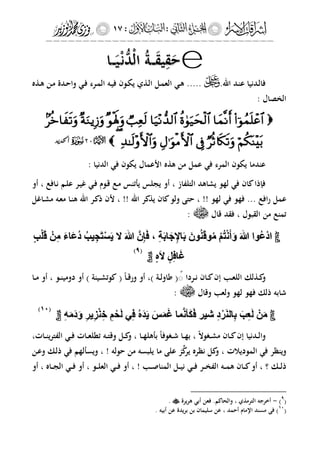 ١٧
حَقِيقَــةُ الدُّنْيَــا
فالدنيا عند الله ..... هي العمل الذي يكون فيه المرء في واحدة من هذه
الخصال :
﴿ ٱعْلَمُوٓا۟ أَنَّمَا ٱلْحَيَوٰةُ ٱلدُّنْيَا لَعِبٌ وَلَهْوٌ وَزِينَةٌ وَتَفَاخُرٌۢ
بَيْنَكُمْ وَتَكَاثُرٌ فِى ٱلْأَمْوَٰلِ وَٱلْأَوْلَٰدِ ﴾
عندما يكون المرء في عمل من هذه الأعمال يكون في الدنيا :
فإذا كان في لهو يشاهد التلفاز ، أو يجلس يأتنس مع قوم في غير علم نافع ، أو
عمل رافع ... فهو في لهو !! ، حتى ولو كان يذكر الله !! ، لأن ذكر الله هنا معه مشاغل
تمنع من القبول ، فقد قال :
ادْعُوا اللَّهَ وَأَنْتُمْ مُوقِنُونَ بِالإِجَابَةِ ، فَإِنَّ اللَّهَ لا يَسْتَجِيبُ دُعَاءً مِنْ قَلْبٍ
غَافِلٍ لاَهٍ (٩)
وكذلك اللعب إن كان نردا ( طاولة )، أو ورقاً ( كوتشينة ) ، أو دومينو ، أو ما
شابه ذلك فهو لهو ولعب وقال :
مَنْ لَعِبَ بِالنَّرْدِ شِيرِ فَكَأَنَّما غَمَسَ يَدَهُ فِي لَحْمِ خِنْزِيرٍ وَدَمِهِ (١٠)
والدنيا إن كان مشغولاً ، بها شغوفاً بأهلها ، وكل وقته تطلعات في الفترينات،
وينظر في الموديلات ، وكل نظره يركِّز على ما يلبسه من حوله ! ، ويسألهم في ذلك وعن
ذلك ؟ ، أو كان همه الفخر في نيل المناصب ! ، أو في العلو ، أو في الجاه ، أو
(٩) - أخرجه الترمذي ، والحاكم. فعن أبي هريرة .
(١٠) في مسند الإمام أحمد ، عن سليمان بن بريدة عن أبيه .